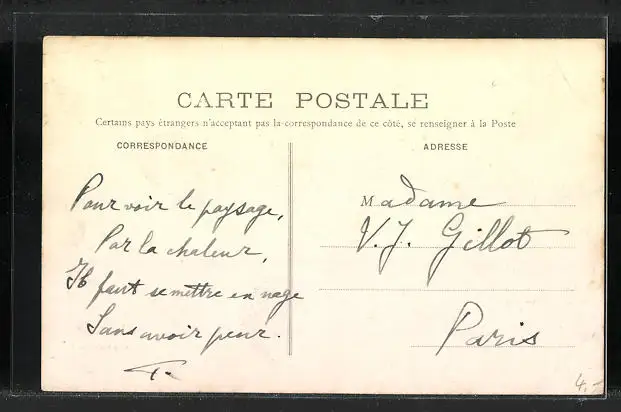 CARTE POSTALE
Certains pays étrangers n'acceptant pas la correspondance de ce côté, se renseigner à la Poste
CORRESPONDANCE
Pour voir le paysage,
Par la chaleur,
Il faut se mettre en nage
Sans avoir peur.
ADRESSE
Madame
V. J. Gillot
Paris